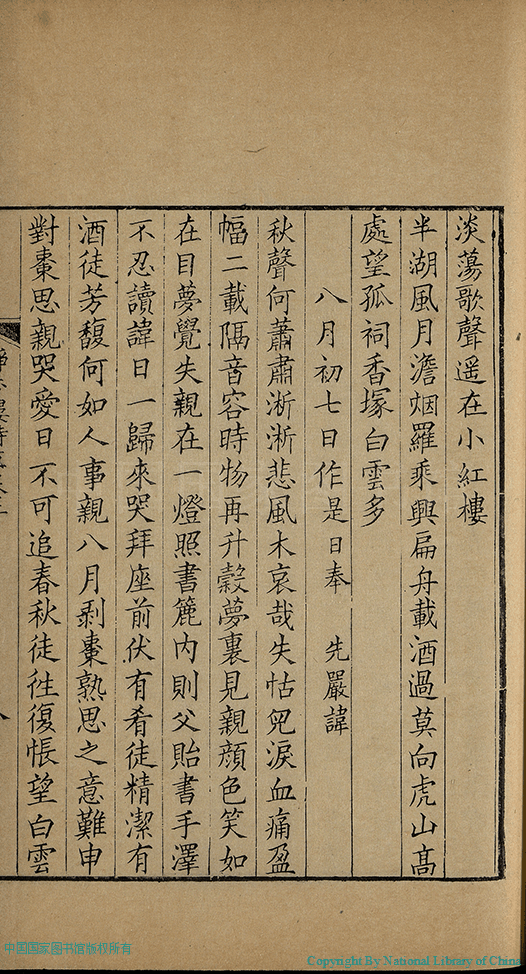 淡蕩歌聲遥在小紅樓
半湖風月澹烟羅乘興扁舟載酒過莫向虎山髙
處望孤祠香塚白雲多
八月初七日作是日奉 先嚴諱
秋聲何蕭肅淅淅悲風木哀哉失怙兒淚血痛盈
幅二載隔音容時物再升穀夢裏見親顔色笑如
在目夢覺失親在一燈照書簏内則父貽書手澤
不忍讀諱日一歸來哭拜座前伏有肴徒精潔有
酒徒芳馥何如人事親八月剥棗熟思之意難申
對棗思親哭愛日不可追春秋徒徃復悵望白雲
中国国家图书馆版权所有
Copyright By National Library of China